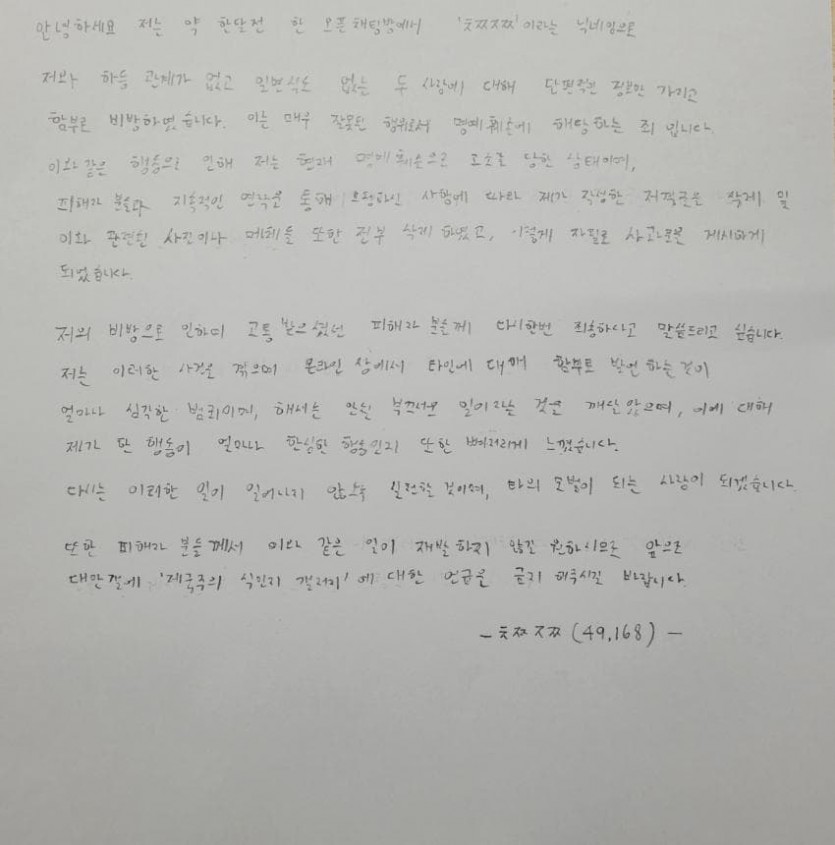 안녕하세요 저는 약 한달전 한 오픈채팅방에서 'ㅊㅉㅈㅉ'이라는 닉네임으로
저와 하등 관계가 없고 일면식도 없는 두 사람에 대해 단편적인 정보만 가지고
함부로 비방하였습니다. 이는 매우 잘못된 행위로서 명예훼손에 해당하는 죄 입니다.
이와 같은 행동으로 인해 저는 현재 명예훼손으로 고소를 당한 상태이며,
피해자 분들과 지속적인 연락을 통해 요청하신 사항에 따라 제가 작성한 저격글을 삭제 및
이와 관련된 사진이나 매체들 또한 전부 삭제 하였고, 이렇게 자필로 사과문을 게시하게
되었습니다.
저의 비방으로 인하여 고통 받으셨던 피해자 분들께 다시한번 죄송하다고 말씀드리고 싶습니다.
저는 이러한 사건을 겪으며 온라인 상에서 타인에 대해 함부로 발언 하는 것이
얼마나 심각한 범죄이며, 해서는 안될 부끄러운 일이라는 것을 깨달았으며, 이에 대해
제가 한 행동이 얼마나 한심한 행동인지 또한 뼈저리게 느꼈습니다.
다시는 이러한 일이 일어나지 않도록 실천할 것이며, 타의 모범이 되는 사람이 되겠습니다.
또한 피해자 분들 께서 이와 같은 일이 재발 하지 않길 원하시므로 앞으로
대안갤에 '제국주의 식민지 갤러리'에 대한 언급을 금지 해주시길 바랍니다.
- ㅊㅉㅈㅉ (49.168) -